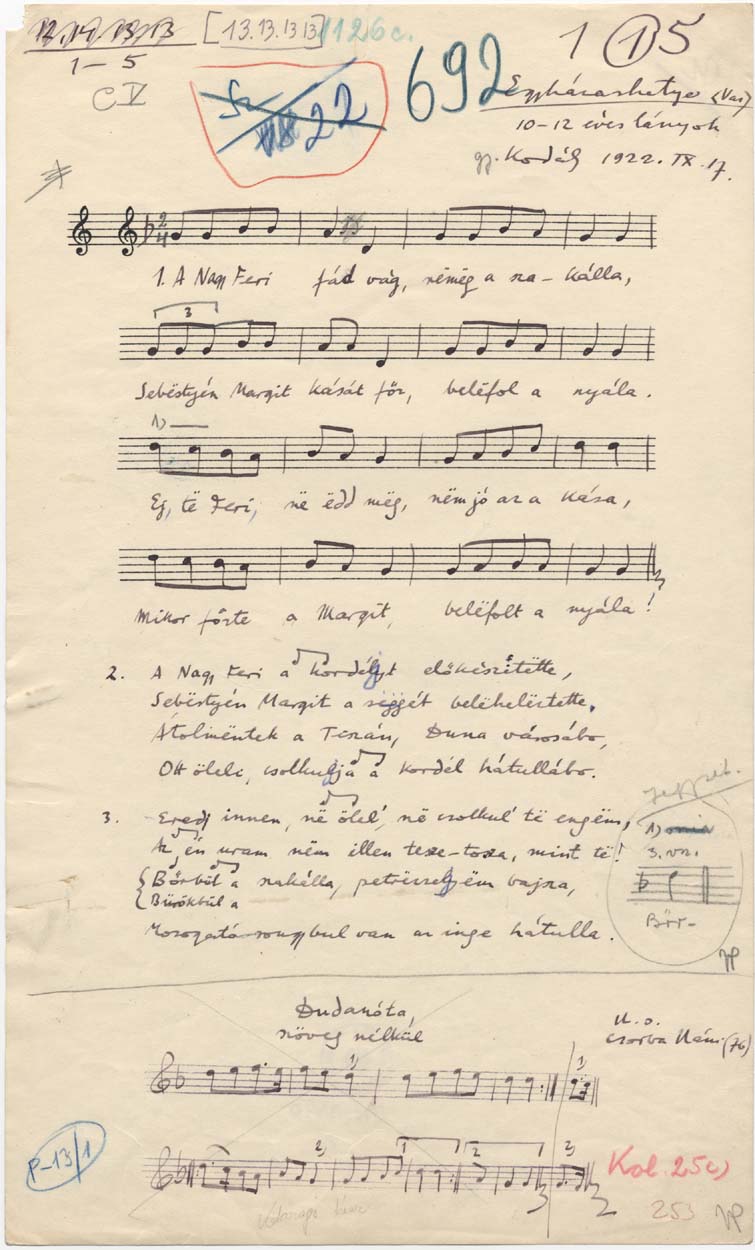 [13.13.13 13] 1126c.
1 1 5
1–5
CV
22
692
Egyházashetye (Vas)
10–12 éves lányok
gy. Kodály 1922. IX. 17.
2
4
1. A Nagy Feri fád vág, rémég a sza-kálla,
3
Sebëstyén Margit kását főz, beléfol a nyála.
1)
Ej, të Feri, në ëdd mëg, nëm jó az a kása,
Mikor főzte a Margit, beléfolt a nyála!
2. A Nagy Feri a kordélyt előkészëtëtte,
Sebëstyén Margit a seggét
Átolmëntek a Tiszán, Duna városábo,
Ott öleli, csolkulja a kordél hátullábo.
3. Eredj innen, në ölel', në csolkul' të engëm,
Az én uram nëm illen tesze-tosza, mint të!
Bőrből a szakálla, bajsza,
Bürökbül a
Mozogató-rongybul van az inge hátulla.
1)
3. vsz.
Bőr-
Dudanóta,
szöveg nélkül
U. o.
Csorba (76)
1)
1)
2)
1
2
2)
P-13/1
Kol. 25c)
253